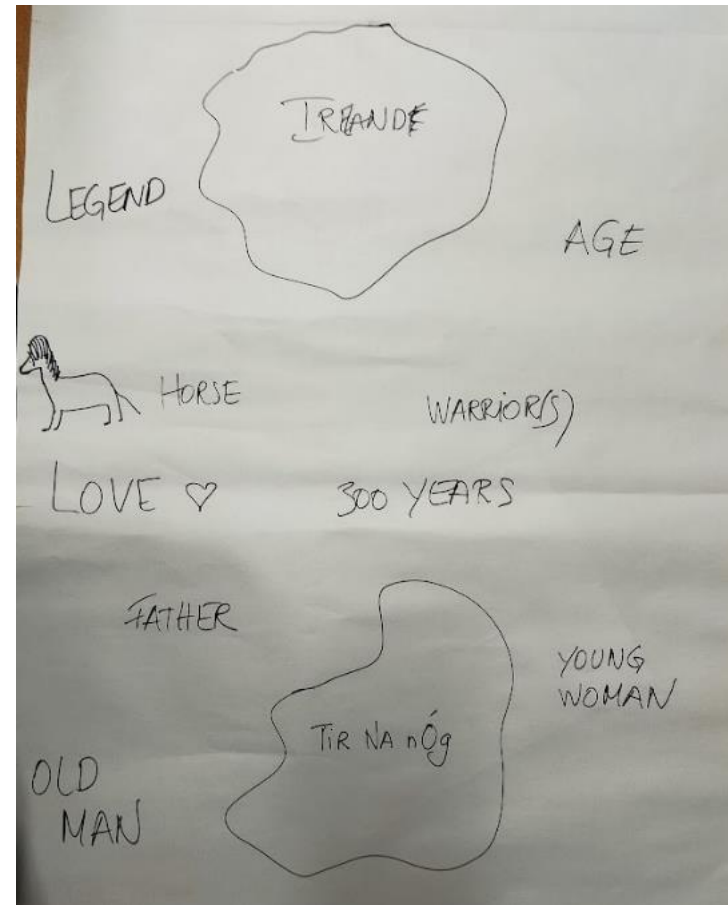 IRELANDE
LEGEND
AGE
HORSE
WARRIOR(S)
LOVE ♡
300 YEARS
FATHER
YOUNG
WOMAN
TIR NA nÓg
OLD
MAN